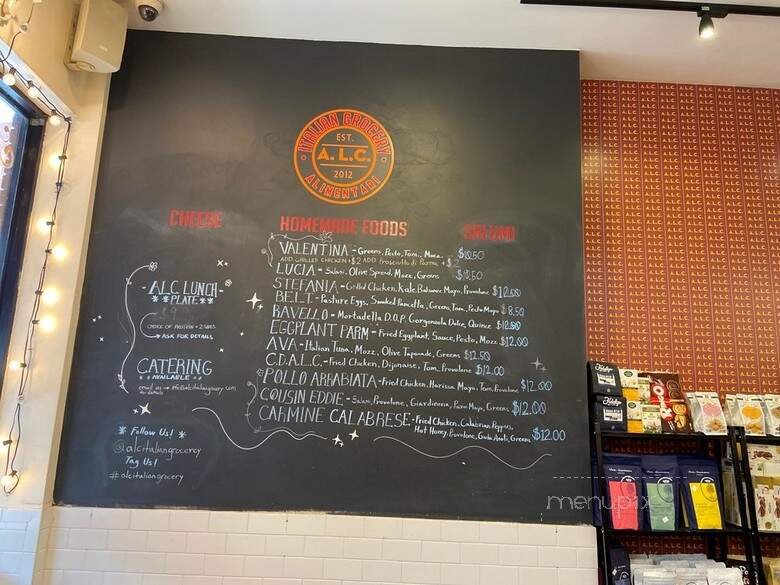 ITALIAN GROCERY
EST.
A.L.C.
2012
ALIMENTARI
CHEESE
HOMEMADE FOODS
SALUMI
VALENTINA - Greens, Pesto, Tom, Mozz.
ADD GRILLED CHICKEN +$2 ADD Prosciutto di Parma +$2
LUCIA - Salami, Olive Spread, Mozz, Greens
STEFANIA - Grilled Chicken, Kale, Balsamic Mayo, Provolone $12.00
B.E.L.T. - Pasture Eggs, Smoked Pancetta, Greens, Tom, Pesto Mayo $8.50
RAVELLO - Mortadella D.O.P, Gorgonzola Dolce, Quince $12.00
EGGPLANT PARM - Fried Eggplant, Sauce, Pesto, Mozz $12.00
AVA - Italian Tuna, Mozz, Olive Tapenade, Greens $12.50
C.D.A.L.C. - Fried Chicken, Dijonaise, Tom, Provolone $12.00
POLLO ARRABIATA - Fried Chicken, Harissa Mayo, Tom, Provolone $12.00
COUSIN EDDIE - Salami, Provolone, Giardiniera, Parm Mayo, Greens $12.00
CARMINE CALABRESE - Fried Chicken, Calabrian Peppers,
Hot Honey, Provolone, Greens $12.00
- A.L.C LUNCH -
PLATE
CHOICE OF PROTEIN + 2 SIDES
→ ASK FOR DETAILS
CATERING
AVAILABLE
email us → info@alcitaliangrocery.com
for details
* Follow Us! *
@alcitaliangrocery
Tag Us!
#alcitaliangrocery
menupix